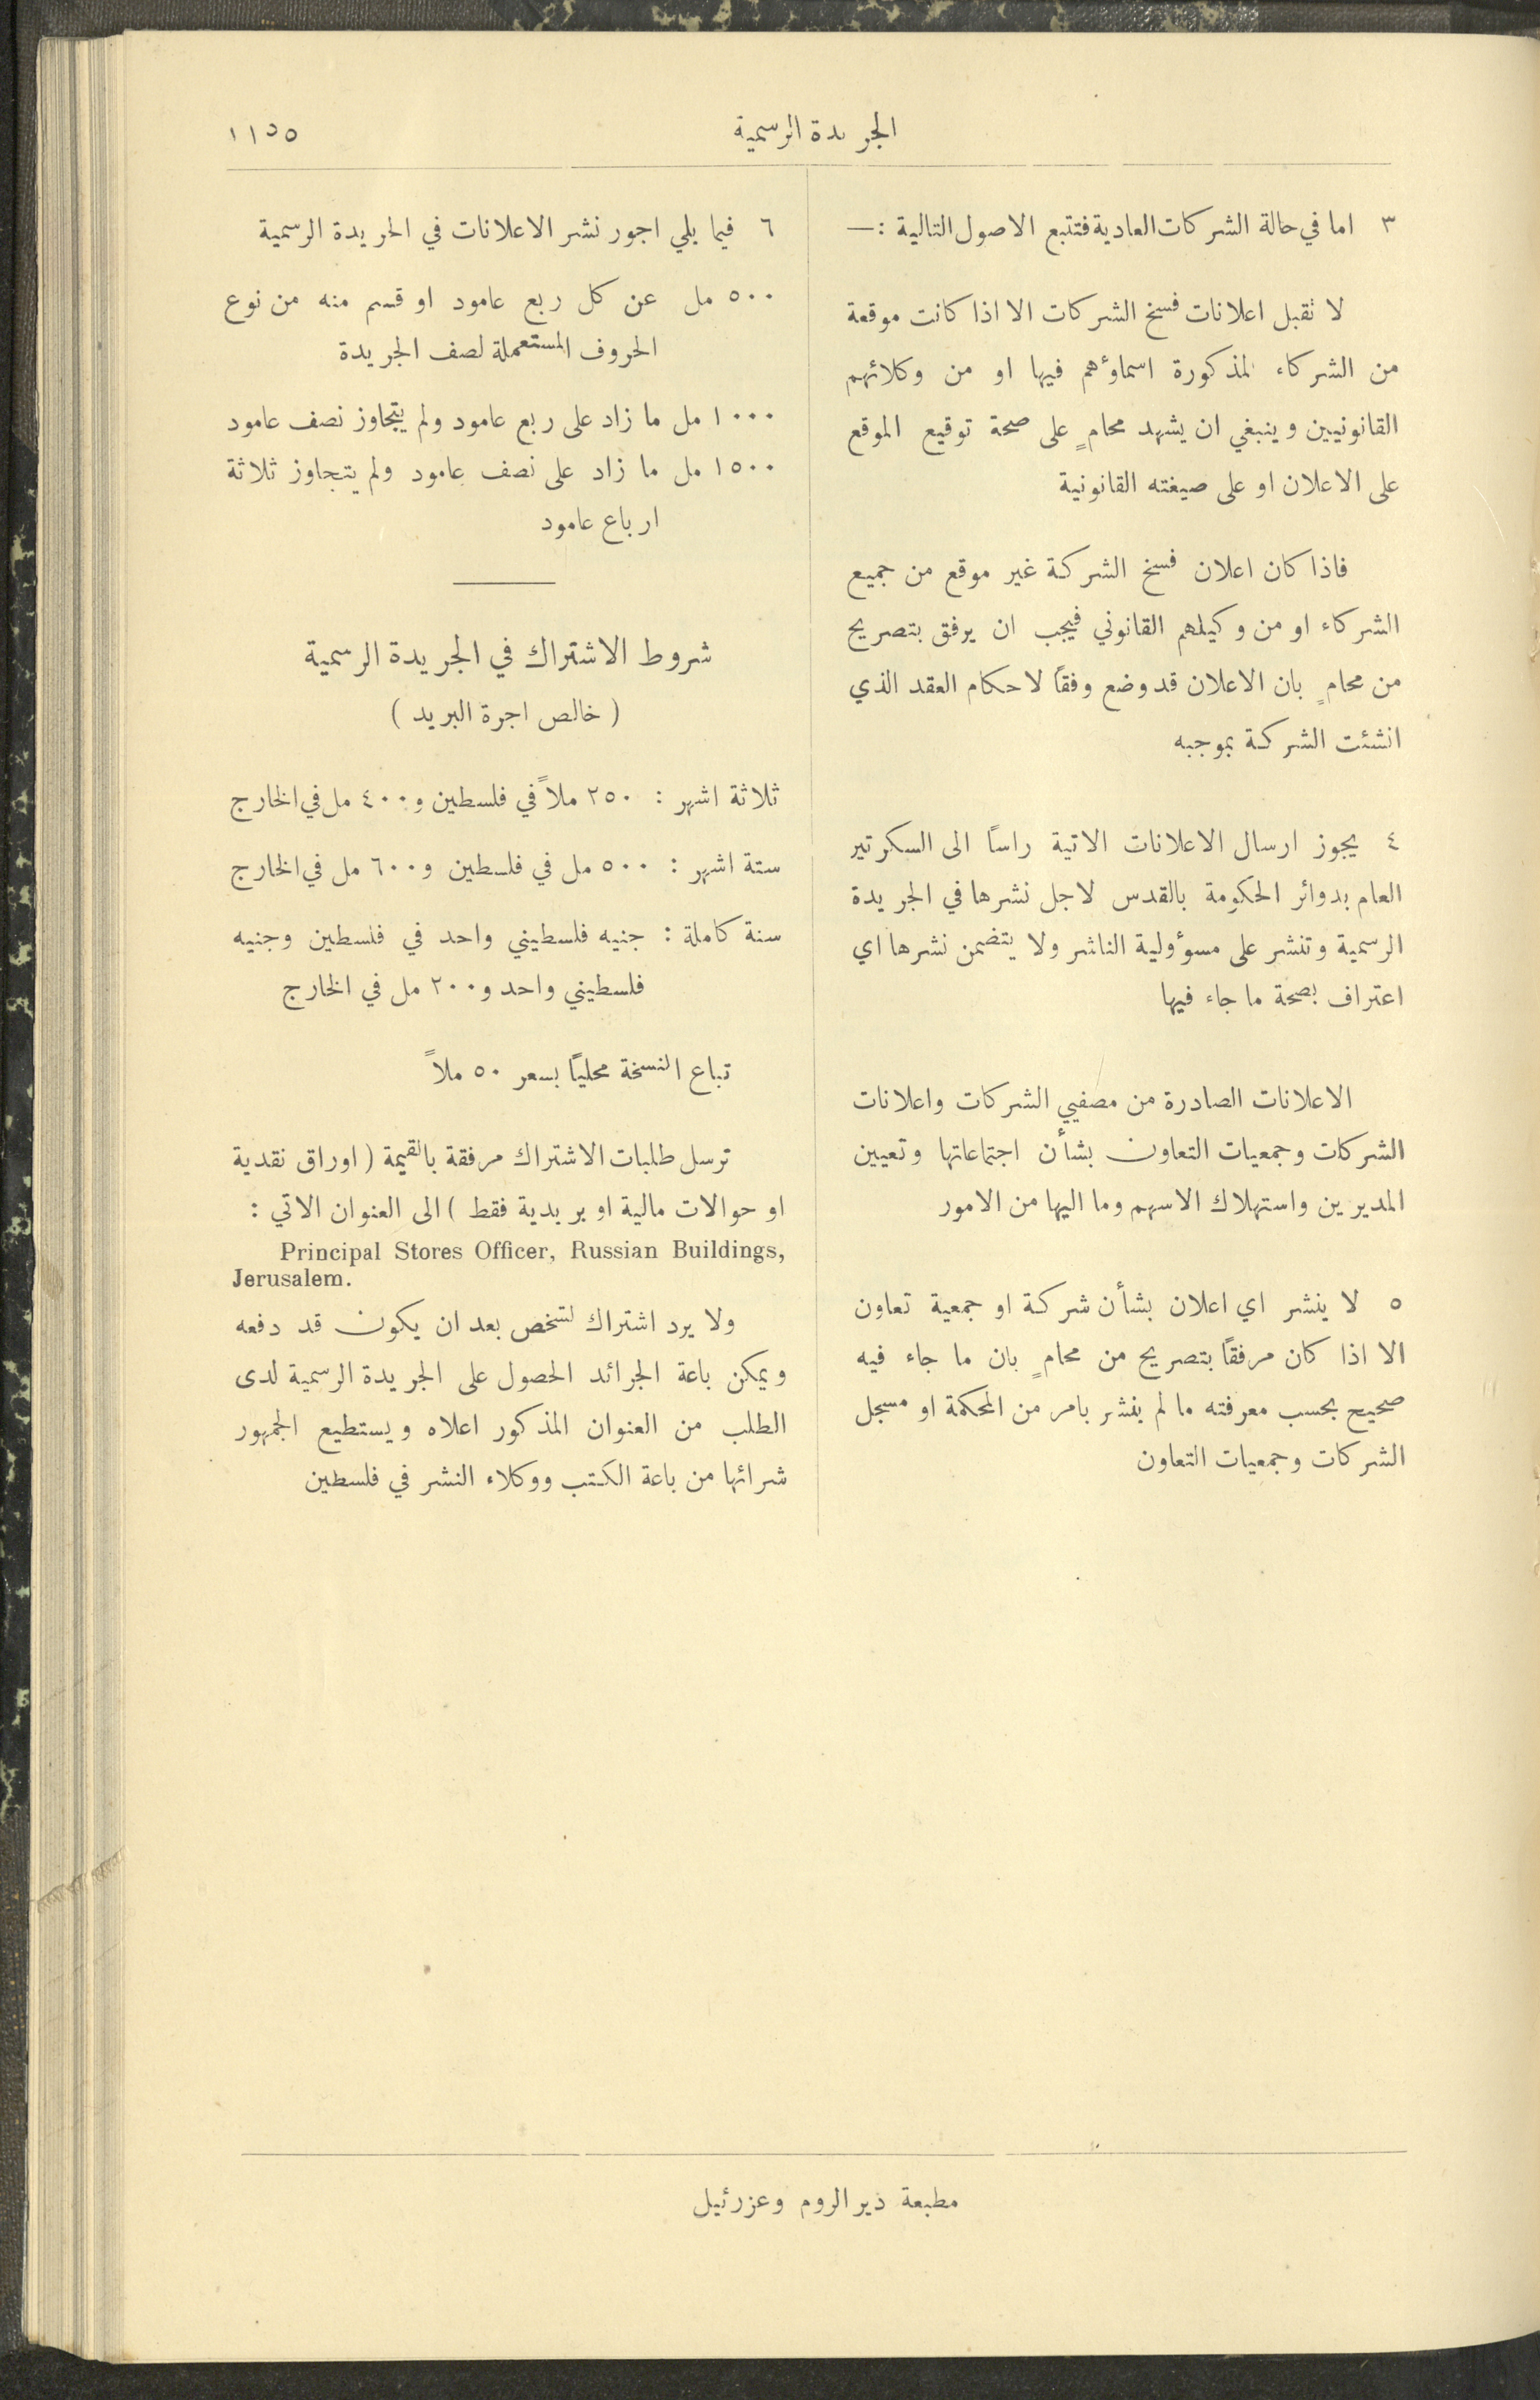 الجريدة الرسمية
١١٥٥
٣ اما في حالة الشركات العادية فتتبع الاصول التالية :—
لا تقبل اعلانات فسخ الشركات الا اذا كانت موقعة
من الشركاء المذكورة اسماؤهم فيها او من وكلائهم
القانونيين وينبغي ان يشهد محامٍ على صحة توقيع الموقع
على الاعلان او على صيغته القانونية
فاذا كان اعلان فسخ الشركة غير موقع من جميع
الشركاء او من وكيلهم القانوني فيجب ان يرفق بتصريح
من محامٍ بان الاعلان قد وضع وفقاً لاحكام العقد الذي
انشئت الشركة بموجبه
٤ يجوز ارسال الاعلانات الاتية راساً الى السكرتير
العام بدوائر الحكومة بالقدس لاجل نشرها في الجريدة
الرسمية وتنشر على مسؤولية الناشر ولا يتضمن نشرها اي
اعتراف بصحة ما جاء فيها
الاعلانات الصادرة من مصفيي الشركات واعلانات
الشركات وجمعيات التعاون بشأن اجتماعاتها وتعيين
المديرين واستهلاك الاسهم وما اليها من الامور
٥ لا ينشر اي اعلان بشأن شركة او جمعية تعاون
الا اذا كان مرفقاً بتصريح من محامٍ بان ما جاء فيه
صحيح بحسب معرفته ما لم ينشر بامر من المحكمة او مسجل
الشركات وجمعيات التعاون
٦ فيما يلي اجور نشر الاعلانات في الجريدة الرسمية
٥٠٠ مل عن كل ربع عامود او قسم منه من نوع
الحروف المستعملة لصف الجريدة
١٠٠٠ مل ما زاد على ربع عامود ولم يتجاوز نصف عامود
١٥٠٠ مل ما زاد على نصف عامود ولم يتجاوز ثلاثة
ارباع عامود
شروط الاشتراك في الجريدة الرسمية
( خالص اجرة البريد )
ثلاثة اشهر : ٢٥٠ ملاً في فلسطين و٤٠٠ مل في الخارج
ستة اشهر : ٥٠٠ مل في فلسطين و٦٠٠ مل في الخارج
سنة كاملة : جنيه فلسطيني واحد في فلسطين وجنيه
فلسطيني واحد و٢٠٠ مل في الخارج
تباع النسخة محلياً بسعر ٥٠ ملاً
ترسل طلبات الاشتراك مرفقة بالقيمة ( اوراق نقدية
او حوالات مالية او بريدية فقط ) الى العنوان الاتي :
Principal Stores Officer, Russian Buildings,
Jerusalem.
ولا يرد اشتراك لشخص بعد ان يكون قد دفعه
ويمكن باعة الجرائد الحصول على الجريدة الرسمية لدى
الطلب من العنوان المذكور اعلاه ويستطيع الجمهور
شرائها من باعة الكتب ووكلاء النشر في فلسطين
مطبعة دير الروم وعزرئيل